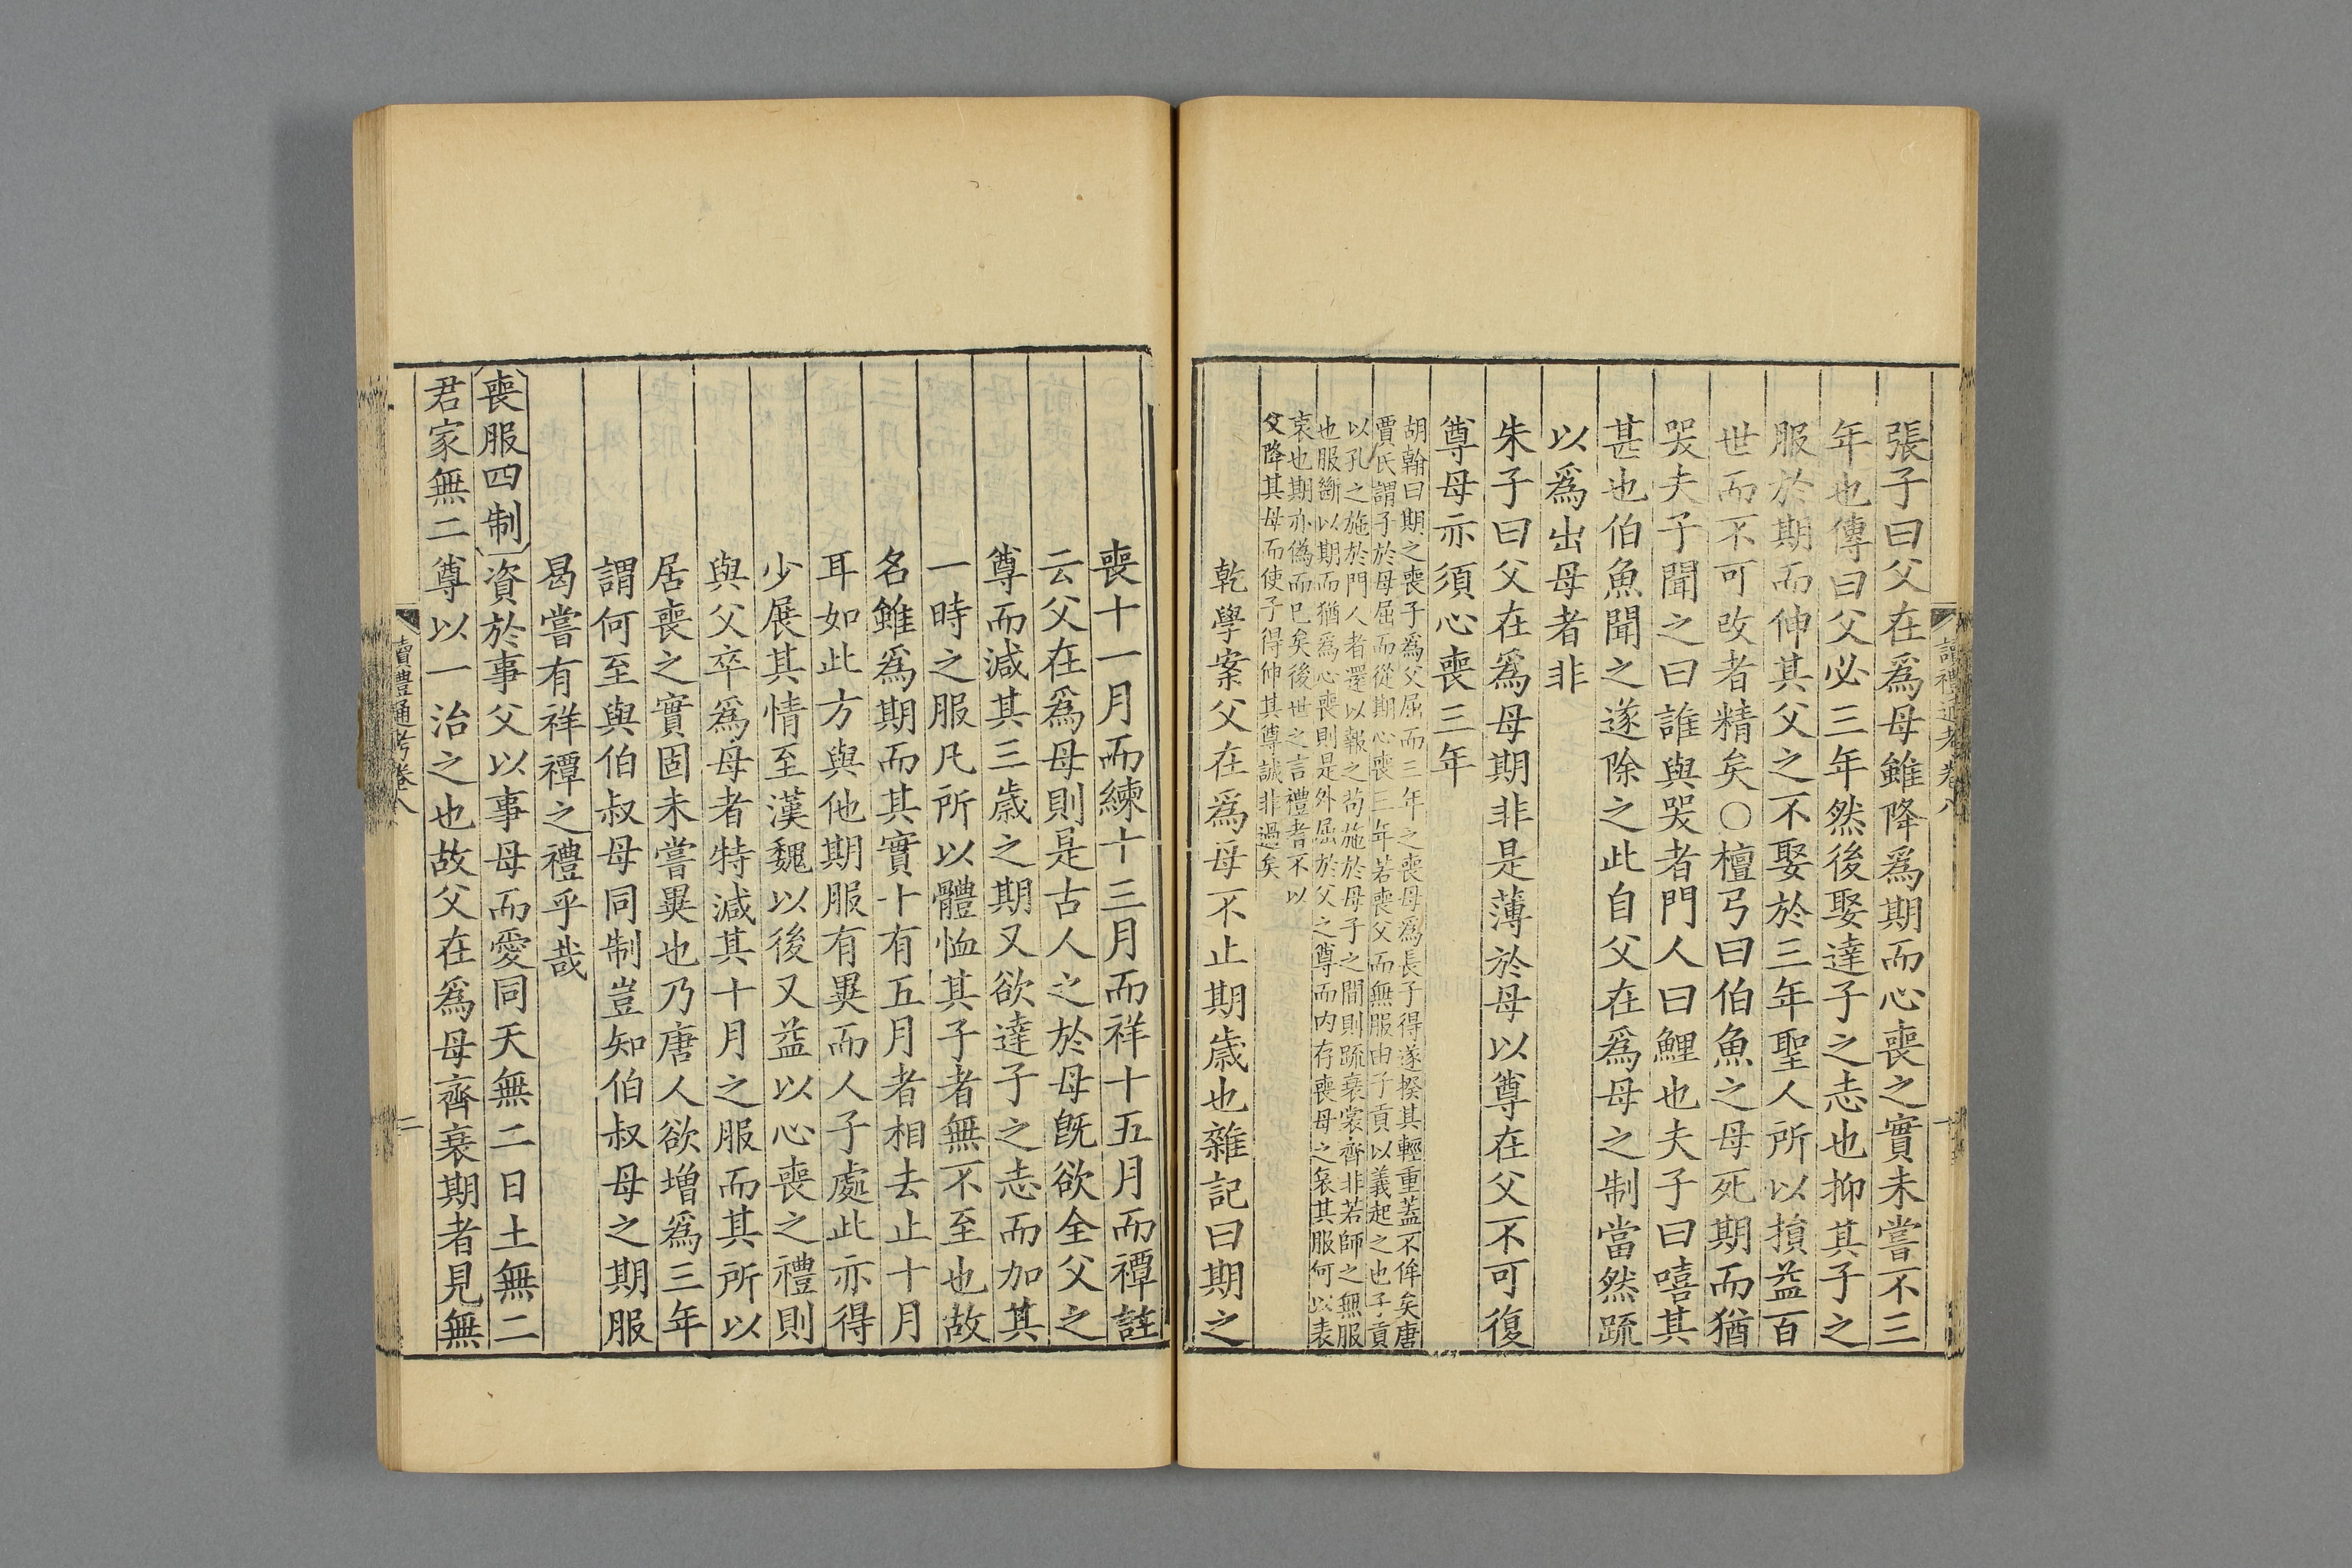 讀禮通考卷八
張子曰父在爲母雖降爲期而心喪之實未嘗不三
年也傳曰父必三年然後娶達子之志也抑其子之
服於期而伸其父之不娶於三年聖人所以損益百
世而不可改者精矣〇檀弓曰伯魚之母死期而猶
哭夫子聞之曰誰與哭者門人曰鯉也夫子曰嘻其
甚也伯魚聞之遂除之此自父在爲母之制當然疏
以爲出母者非
朱子曰父在爲母期非是薄於母以尊在父不可復
尊母亦須心喪三年
胡翰曰期之喪子爲父屈而三年之喪母爲長子得遂揆其輕重蓋不侔矣唐
賈氏謂子於母屈而從期心喪三年若喪父而無服由子貢以義起之也子貢
以孔之施於門人者還以報之苟施於母子之間則疏衰裳齊非若師之無服
也服斷以期而猶爲心喪則是外屈於父之尊而内存喪母之哀其服何以表
哀也期亦僞而已矣後世之言禮者不以
父降其母而使子得伸其尊誠非過矣
乾學案父在爲母不止期歲也雜記曰期之
喪十一月而練十三月而祥十五月而禫註
云父在爲母則是古人之於母旣欲全父之
尊而減其三歲之期又欲達子之志而加其
一時之服凡所以體恤其子者無不至也故
名雖爲期而其實十有五月者相去止十月
耳如此方與他期服有異而人子處此亦得
少展其情至漢魏以後又益以心喪之禮則
與父卒爲母者特減其十月之服而其所以
居喪之實固未嘗異也乃唐人欲增爲三年
謂何至與伯叔母同制豈知伯叔母之期服
曷嘗有祥禫之禮乎哉
喪服四制資於事父以事母而愛同天無二日土無二
君家無二尊以一治之也故父在爲母齊衰期者見無
讀禮通考卷八
二